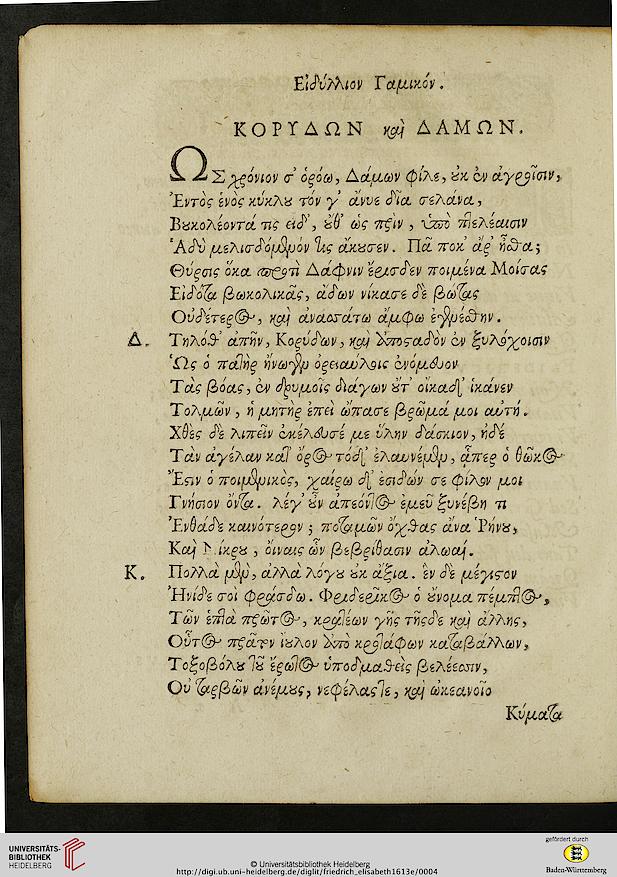 Εἰδύλλιον Γαμικόν.
ΚΟΡΥΔΩΝ καὶ ΔΑΜΩΝ.
ΩΣ χρόνιον σ' ὁρόω, Δάμων φίλε, ἐκ ἐν ἀγροῖσιν,
Ἐντὸς ἑνὸς κύκλου τόν γ' ἄνυε δῖα σελάνα,
Βουκολέοντά τις εἶδ', οὐθ' ὡς πρὶν, ὑπὸ πτελέαισιν
Ἁδὺ μελισδόμενόν τις ἄκουσεν. Πᾶ ποκ' ἄρ' ἦσθα;
Θύρσις ὅκα προτὶ Δάφνιν ἔρισδεν ποιμένα Μοίσας
Εἰδότα βωκολικᾶς, ἀδων νίκασε δὲ βώτας
Οὐδέτερος, καὶ ἀναστάτω ἄμφω ἐγενέσθην.
Δ. Τηλόθ' ἀπῆν, Κορύδων, καὶ ἀποσταδὸν ἐν ξυλόχοισιν
Ὥς ὁ πατὴρ ἤνωγεν ὀρειαύλοις ἐνόμευον
Τὰς βόας, ἐν δρυμοῖς διάγων οὔτ' οἴκαδ' ἱκάνεν
Τολμῶν, ἡ μητὴρ ἐπεὶ ὤπασε βρῶμά μοι αὐτή.
Χθὲς δὲ λιπεῖν ἐκέλευσέ με ὕλην δάσκιον, ἠδέ
Τὰν ἀγέλαν κατ' ὄρος τόδ' ἐλαυνέμεν, ἇπερ ὁ θῶκος
Ἔστιν ὁ ποιμενικὸς, χαίρω δ' ἐσιδών σε φίλον μοι
Γνήσιον ὄντα. λέγ' οὖν ἀπεόντος ἐμεῦ ξυνέβη τι
Ἐνθάδε καινότερον; ποταμῶν ὄχθας ἄνα Ῥήνου,
Καὶ Νίκρου, οἴναις ὧν βεβρίθασιν ἀλωαί.
Κ. Πολλὰ μὲν, ἀλλὰ λόγου οὐκ ἄξια. ἓν δὲ μέγιστον
Ἠνίδε σοὶ φράσδω. Φριδερῖκος ὁ οὔνομα πέμπτος,
Τῶν ἑπτὰ πρῶτος, κρατέων γῆς τῆσδε καὶ ἄλλης,
Οὗτος πρᾶτον ἴουλον ἀπὸ κροτάφων καταβάλλων,
Τοξοβόλου τοῦ ἔρωτος ὑποδμαθεὶς βελέεσσιν,
Οὐ ταρβῶν ἀνέμους, νεφέλας τε, καὶ ὠκεανοῖο
Κύματα
UNIVERSITÄTS-
BIBLIOTHEK
HEIDELBERG
© Universitätsbibliothek Heidelberg
http://digi.ub.uni-heidelberg.de/diglit/friedrich_elisabeth1613e/0004
gefördert durch
Baden-Württemberg